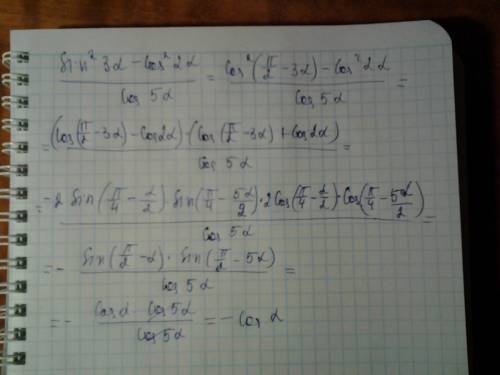 (sin² 3α − cos² 2α) / cos 5α = (cos² (π/2 − 3α) − cos² 2α) / cos 5α =
= ((cos(π/2 − 3α) − cos 2α) · (cos(π/2 − 3α) + cos 2α)) / cos 5α =
= (−2 sin(π/4 − α/2) · sin(π/4 − 5α/2) · 2 cos(π/4 − α/2) · cos(π/4 − 5α/2)) / cos 5α =
= − (sin(π/2 − α) · sin(π/2 − 5α)) / cos 5α =
= − (cos α · cos 5α) / cos 5α = − cos α